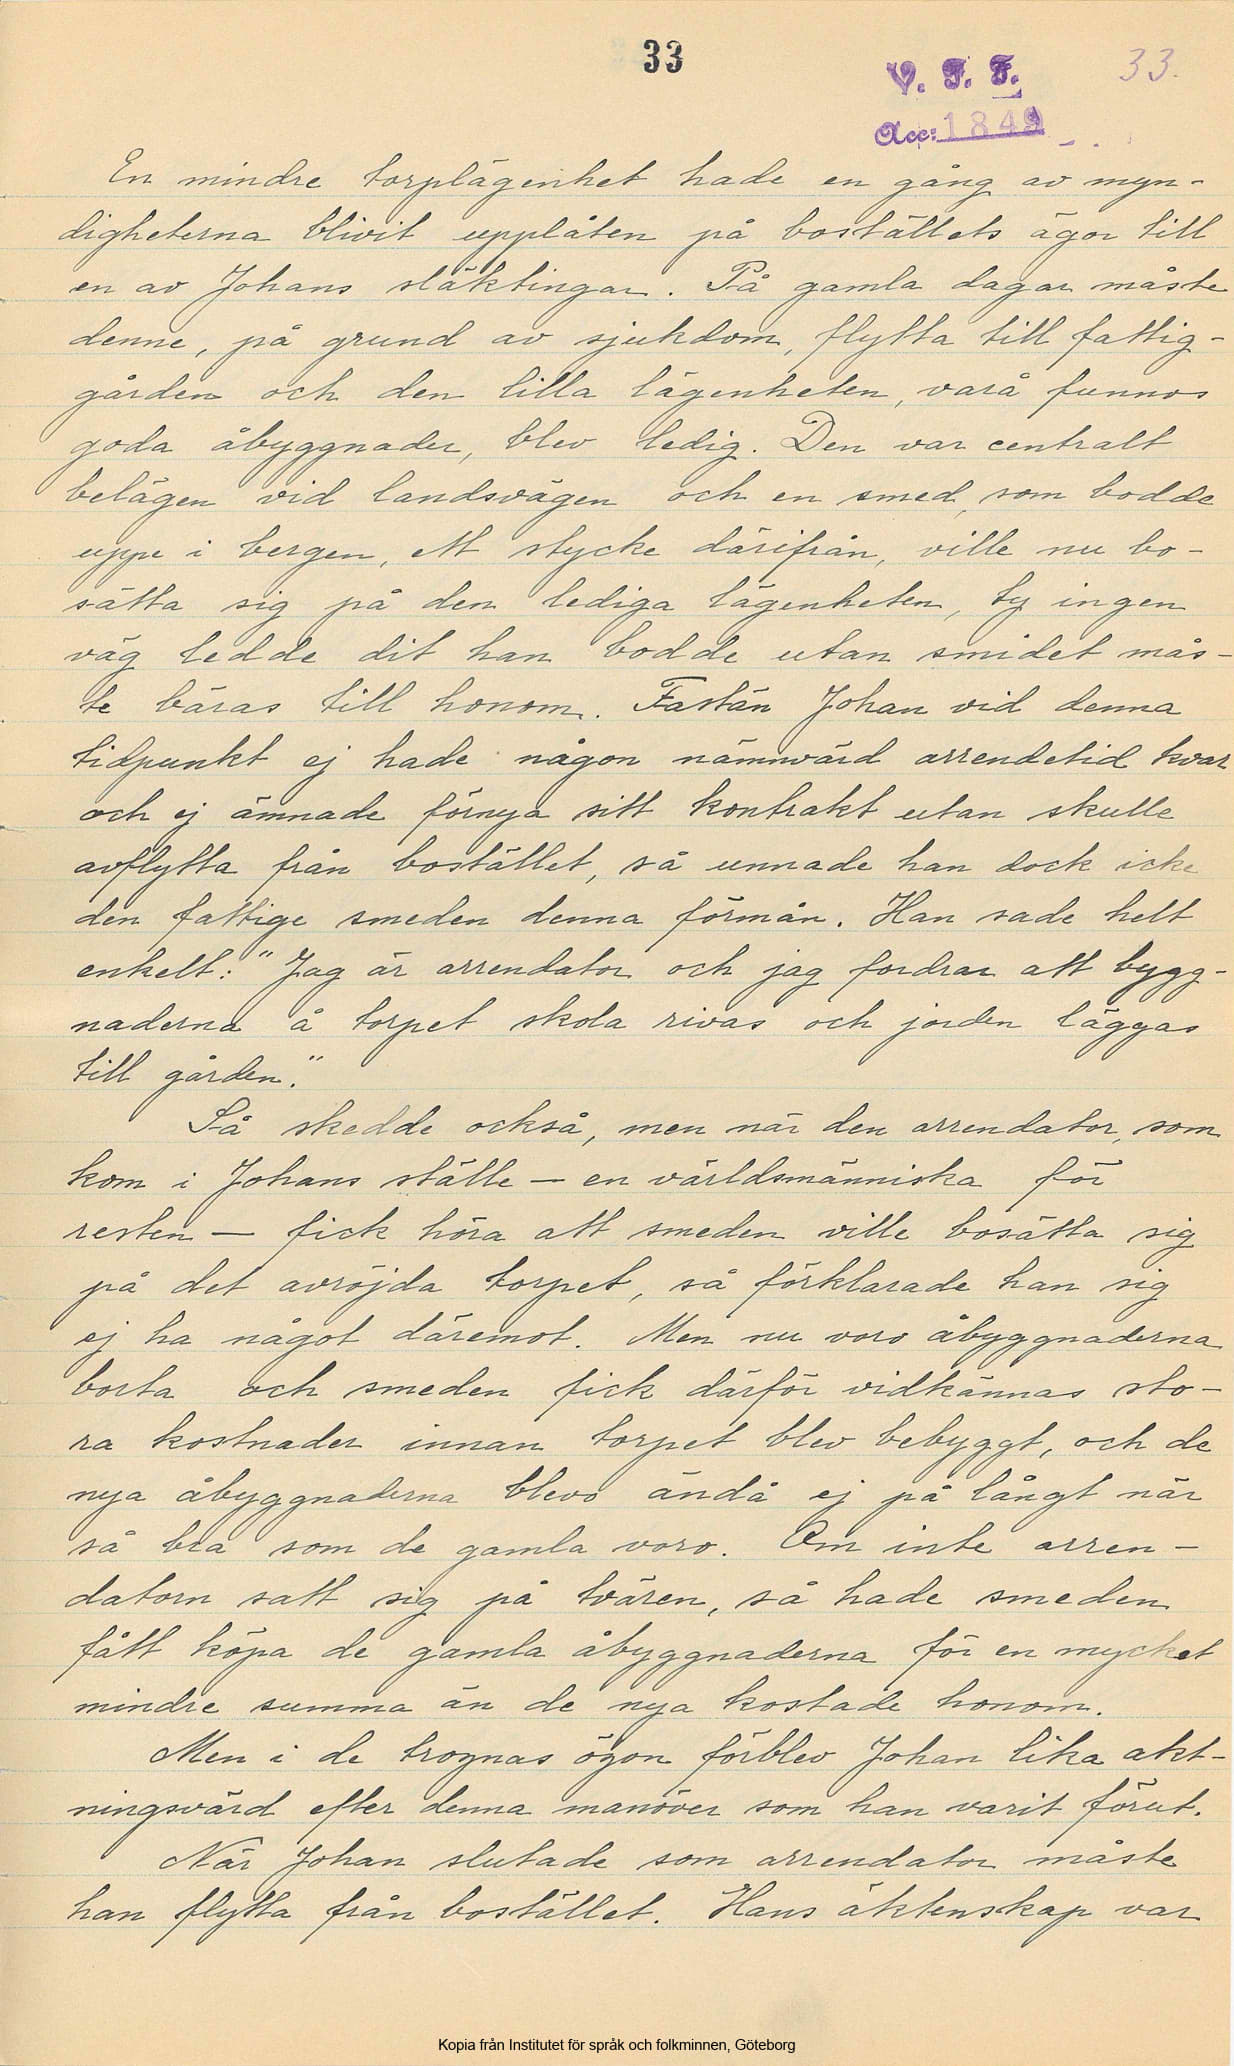 33
V. F. F.
33.
Acc: 1849
En mindre torplägenhet hade en gång av myn-
digheterna blivit upplåten på boställets ägor till
en av Johans släktingar. På gamla dagar måste
denne, på grund av sjukdom, flytta till fattig-
gården och den lilla lägenheten, varå funnos
goda åbyggnader, blev ledig. Den var centralt
belägen vid landsvägen och en smed, som bodde
uppe i bergen, ett stycke därifrån, ville nu bo-
sätta sig på den lediga lägenheten, ty ingen
väg ledde dit han bodde utan smidet mås-
te bäras till honom. Fastän Johan vid denna
tidpunkt ej hade någon nämnvärd arrendetid kvar
och ej ämnade förnya sitt kontrakt utan skulle
avflytta från bostället, så unnade han dock icke
den fattige smeden denna förmån. Han sade helt
enkelt: "Jag är arrendator och jag fordrar att bygg-
naderna å torpet skola rivas och jorden läggas
till gården."
Så skedde också, men när den arrendator, som
kom i Johans ställe — en världsmänniska för
resten — fick höra att smeden ville bosätta sig
på det avröjda torpet, så förklarade han sig
ej ha något däremot. Men nu voro åbyggnaderna
borta och smeden fick därför vidkännas sto-
ra kostnader innan torpet blev bebyggt, och de
nya åbyggnaderna blevo ändå ej på långt när
så bra som de gamla voro. Om inte arren-
datorn satt sig på tvären, så hade smeden
fått köpa de gamla åbyggnaderna för en mycket
mindre summa än de nya kostade honom.
Men i de trognas ögon förblev Johan lika akt-
ningsvärd efter denna manöver som han varit förut.
När Johan slutade som arrendator måste
han flytta från bostället. Hans äktenskap var
Kopia från Institutet för språk och folkminnen, Göteborg